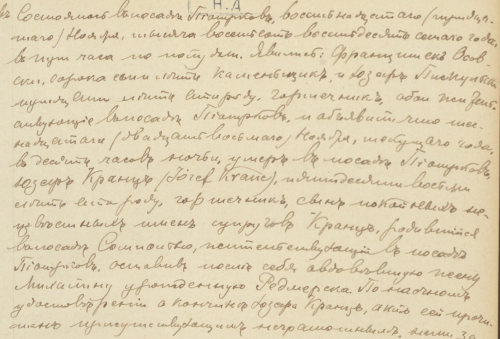 Н.А
Состоялось въ посадѣ Піонтковъ, восемнадцатаго (тридца-
таго) Ноября, тысяча восемьсотъ восемьдесятъ седьмаго года,
въ три часа по полудни. Явились: Францишекъ Осов-
ски, сорока семи лѣтъ каменьщикъ, и Юзефъ
лѣтъ отъ роду, горшечникъ, оба житель-
ствующіе въ посадѣ Піонтковъ, и объявили что
(двадцать восьмаго) Ноября, текущаго года,
въ десять часовъ ночи, умеръ въ посадѣ Піонтковъ,
Юзефъ Кранцъ (Józef Kranc), пятидесяти восьми
лѣтъ отъ роду, горшечникъ, сынъ покойныхъ не-
извѣстныхъ именъ супруговъ Кранцъ, родившійся
въ посадѣ Сомпольно, жительствующій въ посадѣ
Піонтковъ. оставивъ послѣ себя овдовѣвшую жену
урожденную По настоящемъ
удостовѣреніи о кончинѣ Юзефа Кранцъ, актъ сей прочи-
танъ присутствующимъ неграмотнымъ, нами за